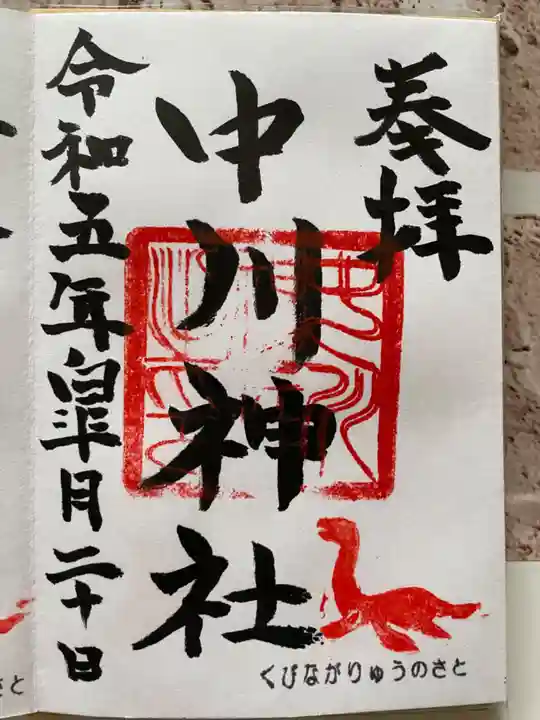 奉拝
中川神社
令和五年皐月二十日
くびながりゅうのさと
さと